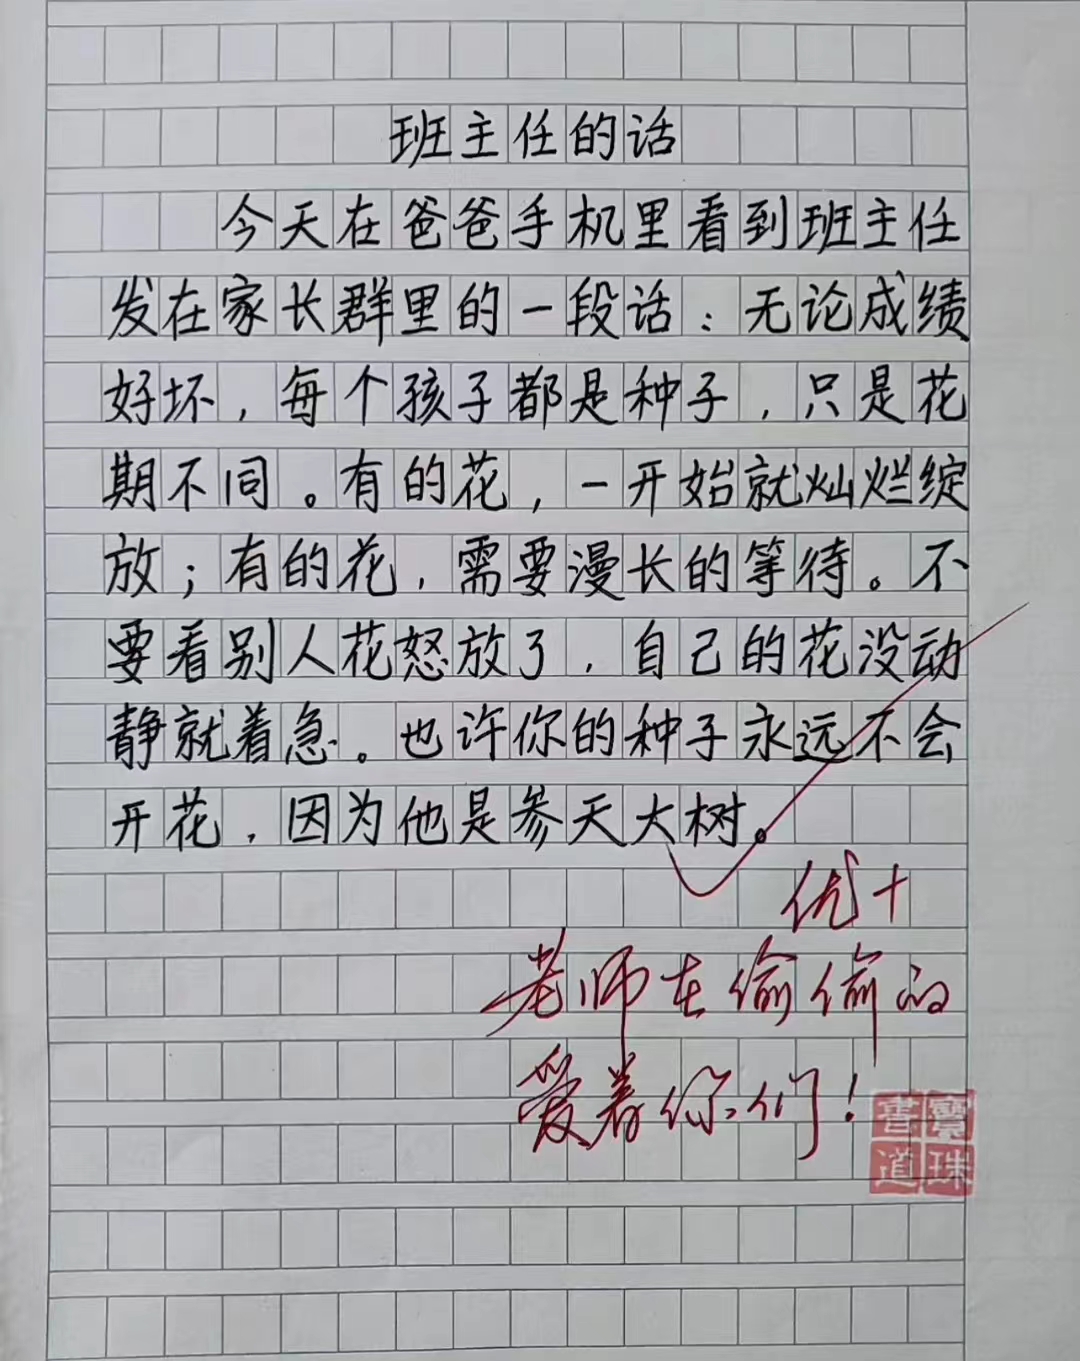 班主任的话
今天在爸爸手机里看到班主任
发在家长群里的一段话：无论成绩
好坏，每个孩子都是种子，只是花
期不同。有的花，一开始就灿烂绽
放；有的花，需要漫长的等待。不
要看别人花怒放了，自己的花没动
静就着急。也许你的种子永远不会
开花，因为他是参天大树。
优+
老师在偷偷的
爱着你们！
寶珠
書道